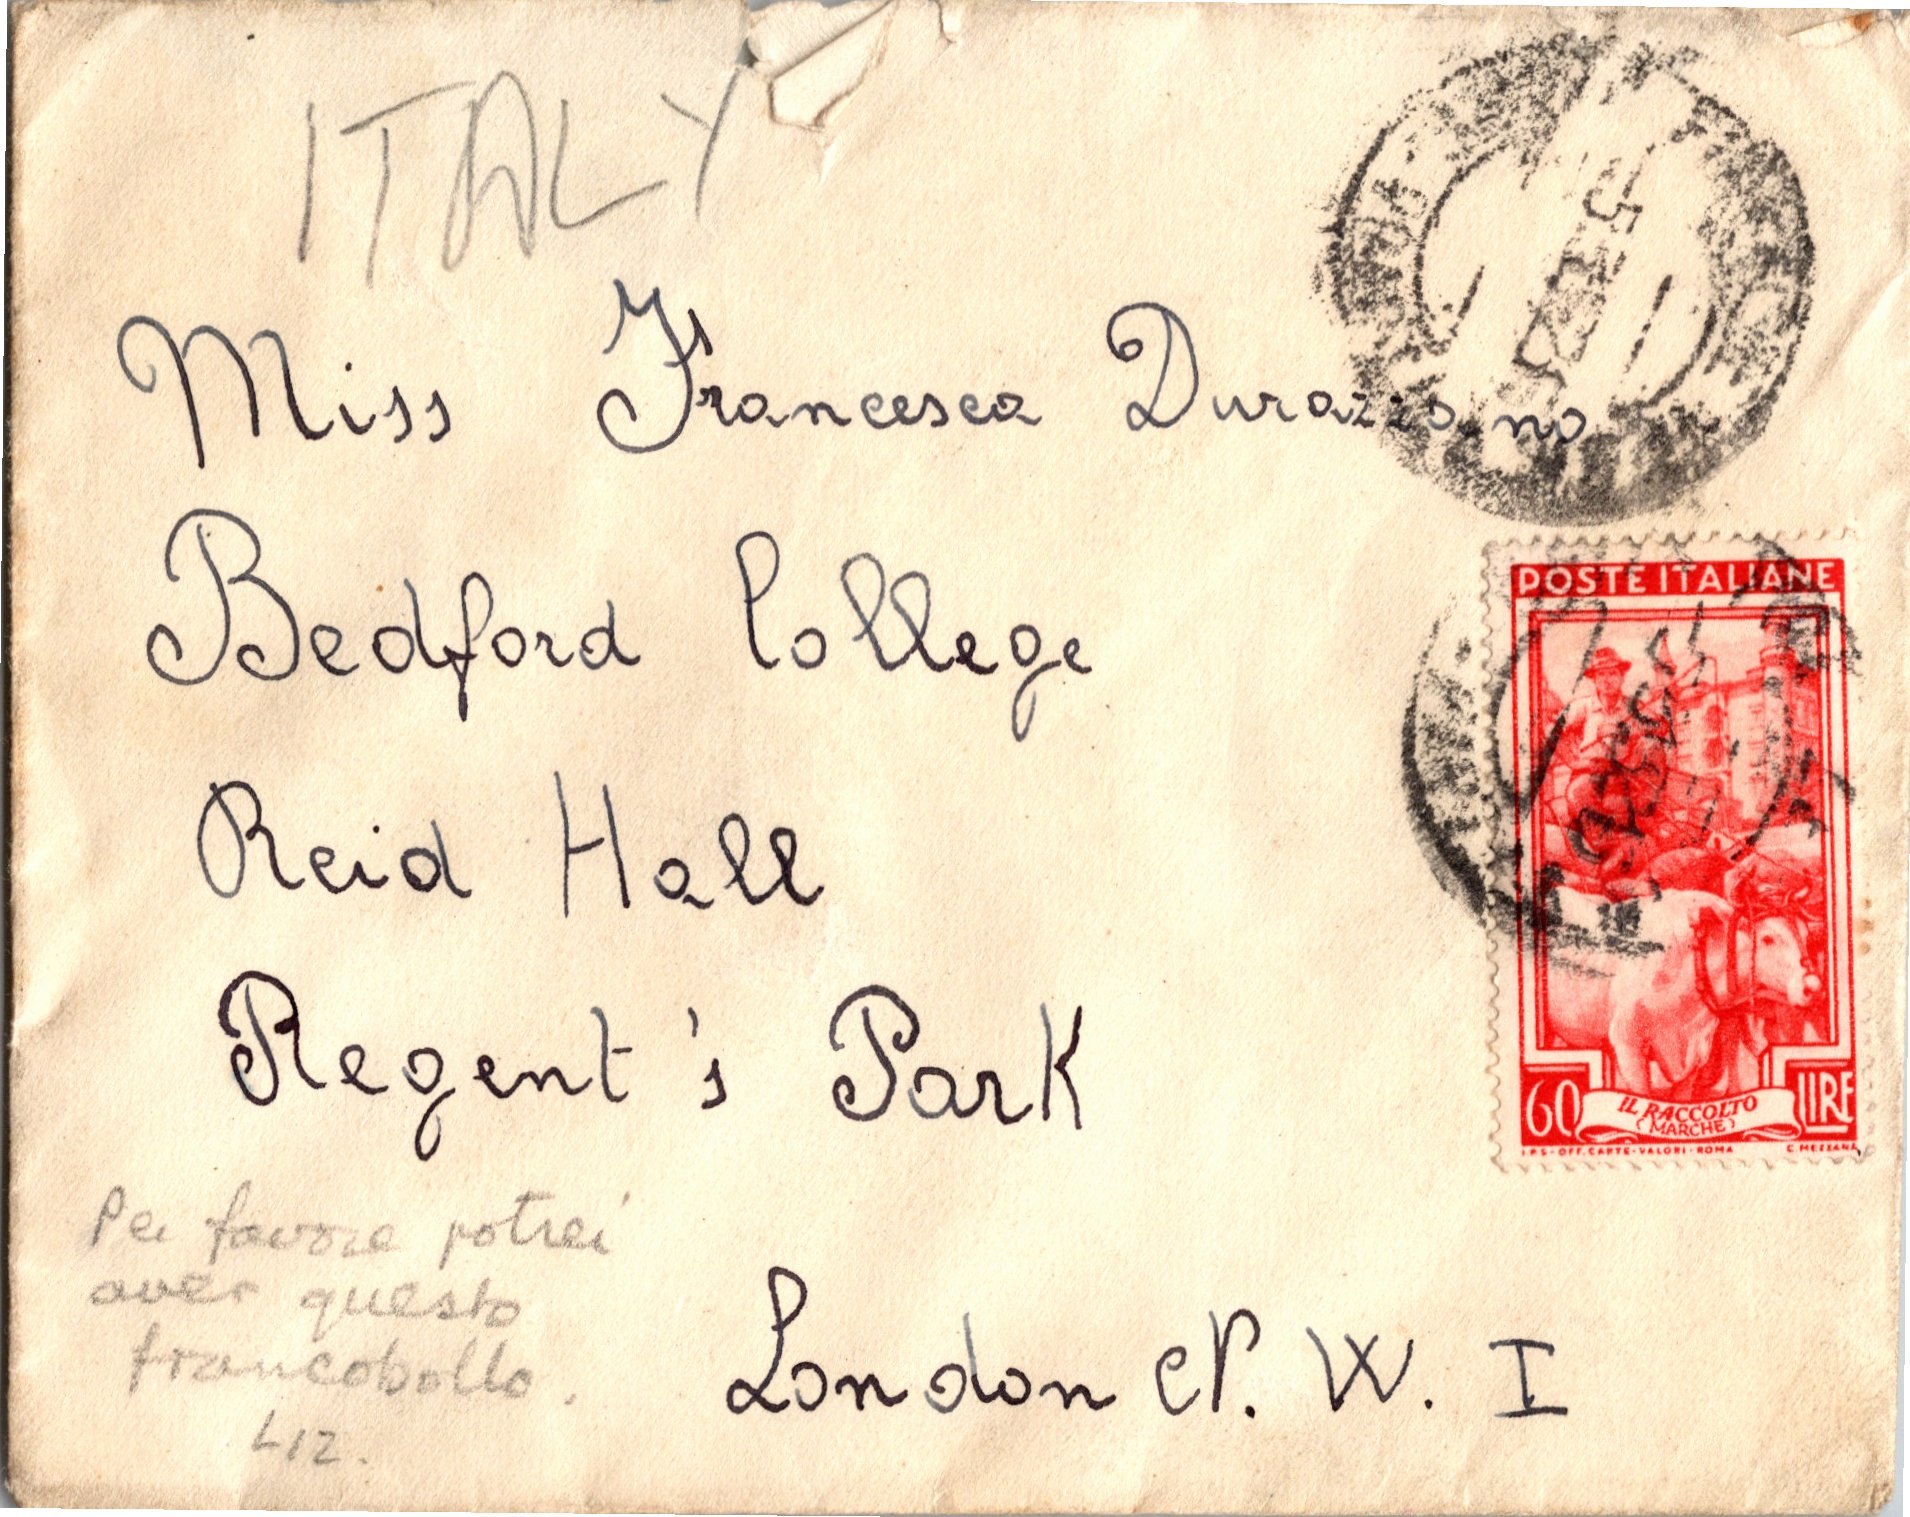 ITALY
Miss Francesca Durazzano
Bedford College
Reid Hall
Regent's Park
London N. W. I
Per favore potrei
aver questo
francobollo.
Liz.
POSTE ITALIANE
60 IL RACCOLTO LIRE
(MARCHE)
I.P.S-OFF.CARTE-VALORI-ROMA C. MEZZANA